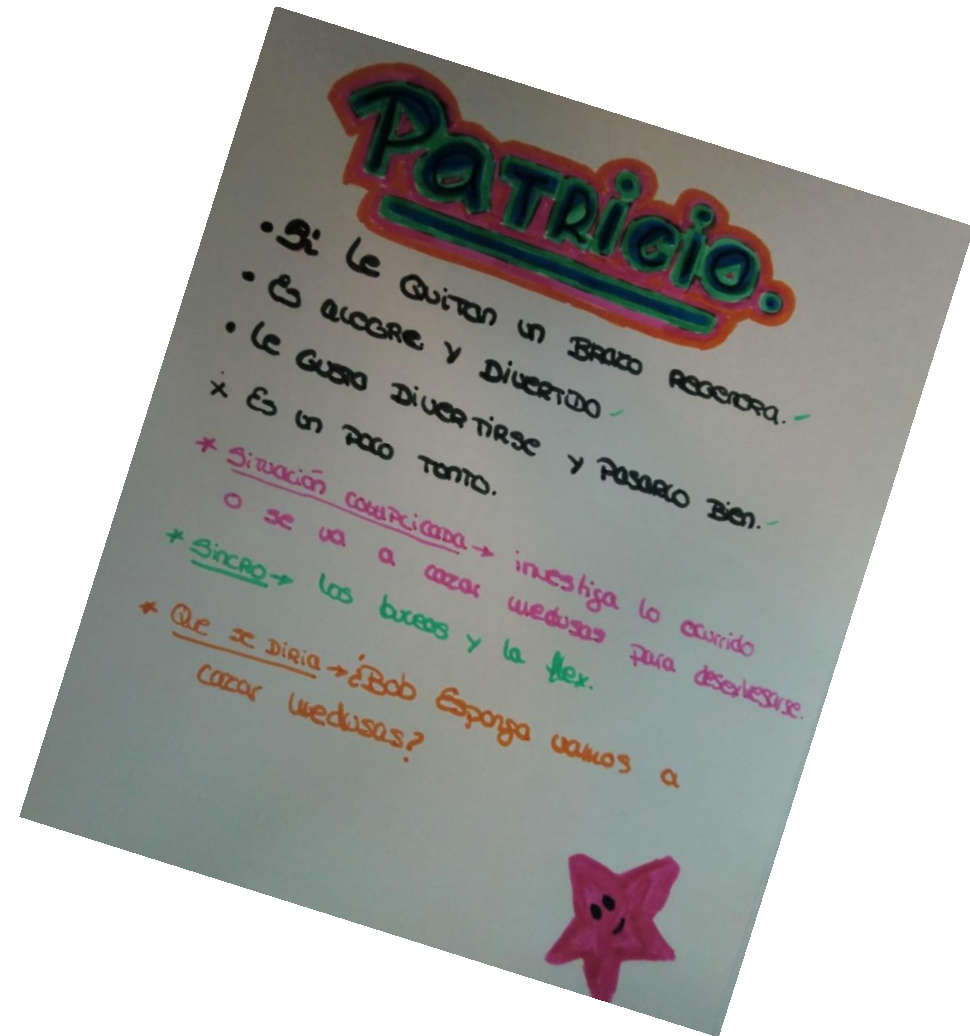 PATRICIO.
• Si le QUITAN un BRAZO REGENERA. -
• Es ALEGRE Y DIVERTIDO -
• Le GUSTA DIVERTIRSE y PASARLO Bien. -
x Es un POCO TONTO.
* Situación complicada → investiga lo ocurrido
o se va a cazar medusas para desestresarse.
* SINCRO → los buceos y la flex.
* Que se DIRIA → ¿Bob Esponja vamos a
cazar medusas?